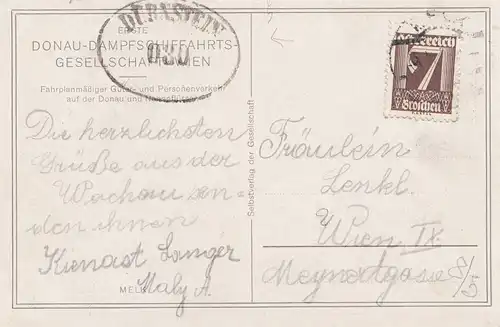 DÜRNSTEIN
020
ERSTE
DONAU-DAMPFSCHIFFAHRTS-
GESELLSCHAFT WIEN
Fahrplanmäßiger Güter- und Personenverkehr
auf der Donau und
Die herzlichsten
Grüße aus der
Wachau sen-
den ihnen
Kienast Langer
Maly A.
MELK
Selbstverlag der Gesellschaft
Österreich
7
Groschen
Fräulein
Lenkl.
Wien IX.
Meynertgasse 8/5